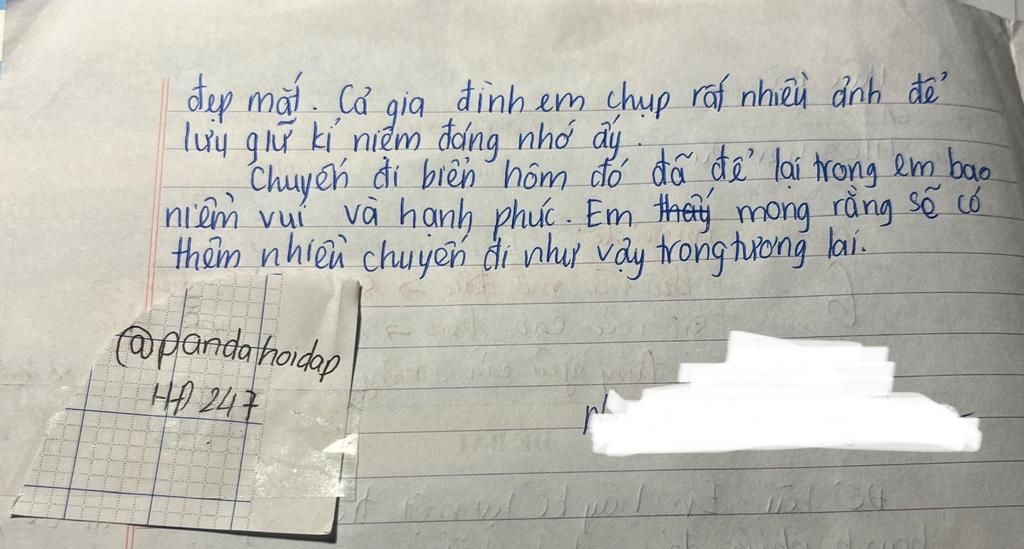 đẹp mắt. Cả gia đình em chụp rất nhiều ảnh để
lưu giữ kỉ niệm đáng nhớ ấy.
Chuyến đi biển hôm đó đã để lại trong em bao
niềm vui và hạnh phúc. Em thấy mong rằng sẽ có
thêm nhiều chuyến đi như vậy trong tương lai.
@pandahoidap
HĐ 247